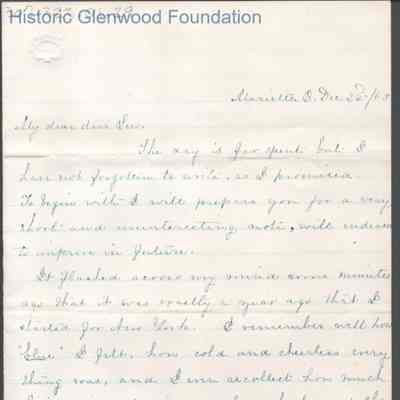 Historic Glenwood Foundation
Marietta O. Dec
My dear dear
The day is far spent but I
have not forgotten to write, as I promised.
To begin with I will prepare you for a very
short and uninteresting note, will endeavor
to improve in future.
It flashed across my mind some minutes
ago that it was exactly a year ago that I
started for New York. I remember well how
"blue" I felt, how cold and cheerless every
thing was, and I even recollect how much